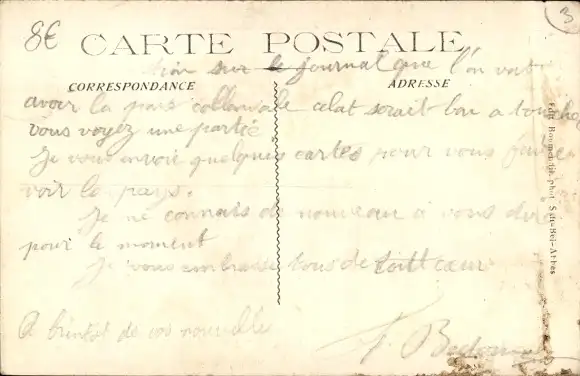 8€
CARTE POSTALE
sur le journal que l'on
CORRESPONDANCE
ADRESSE
avoir la pais coloniale celat serait bon a toucher
vous voyez une partie
Je vous envoie quelques cartes pour vous faire
voir le pays.
Je ne connais de nouveau a vous dire
pour le moment
Je vous embrasse tous de tout cœur
A bientot de vos nouvelles
phot. Sidi-Bel-Abbès